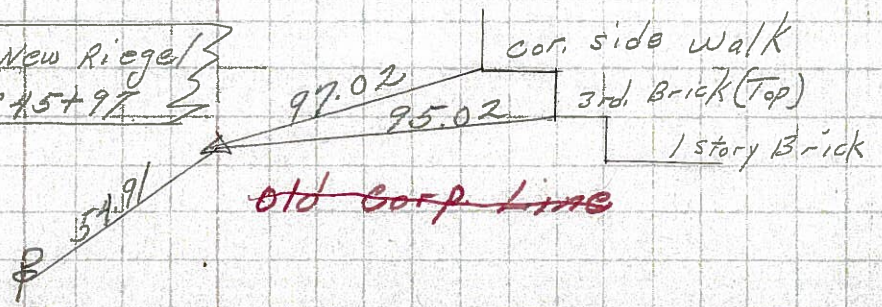 New Riegel
45+97
cor. side walk
97.02
3rd. Brick (Top)
95.02
1 story Brick
54.91
Old Corp. Line